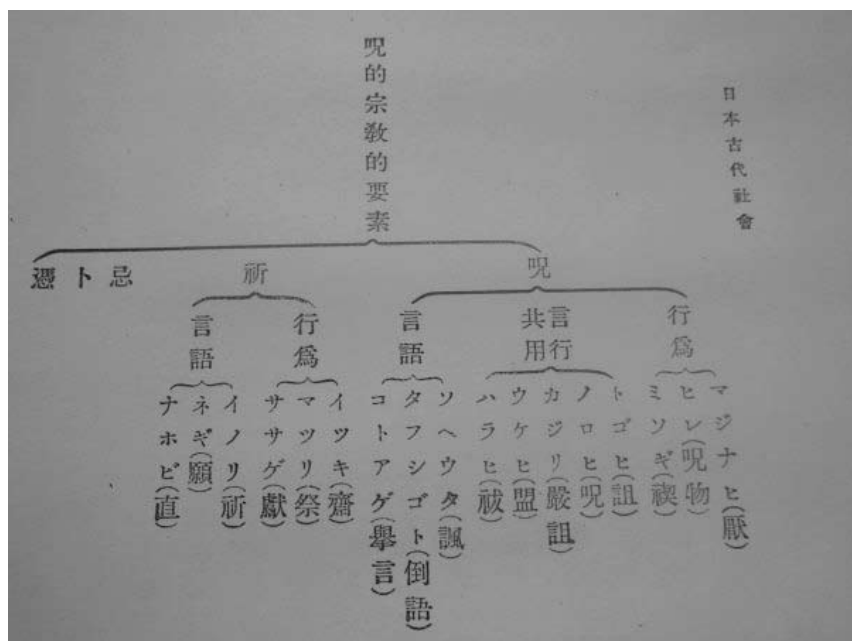 日本古代社會
呪的宗教的要素
呪
行爲
マジナヒ(厭)
ヒレ(呪物)
ミソギ(禊)
言行共用
トゴヒ(詛)
ノロヒ(呪)
カジリ(嚴詛)
ウケヒ(盟)
ハラヒ(祓)
言語
ソヘウタ(諷)
タフシゴト(倒語)
コトアゲ(擧言)
祈
行爲
イツキ(齋)
マツリ(祭)
ササゲ(獻)
言語
イノリ(祈)
ネギ(願)
ナホビ(直)
忌
卜
憑